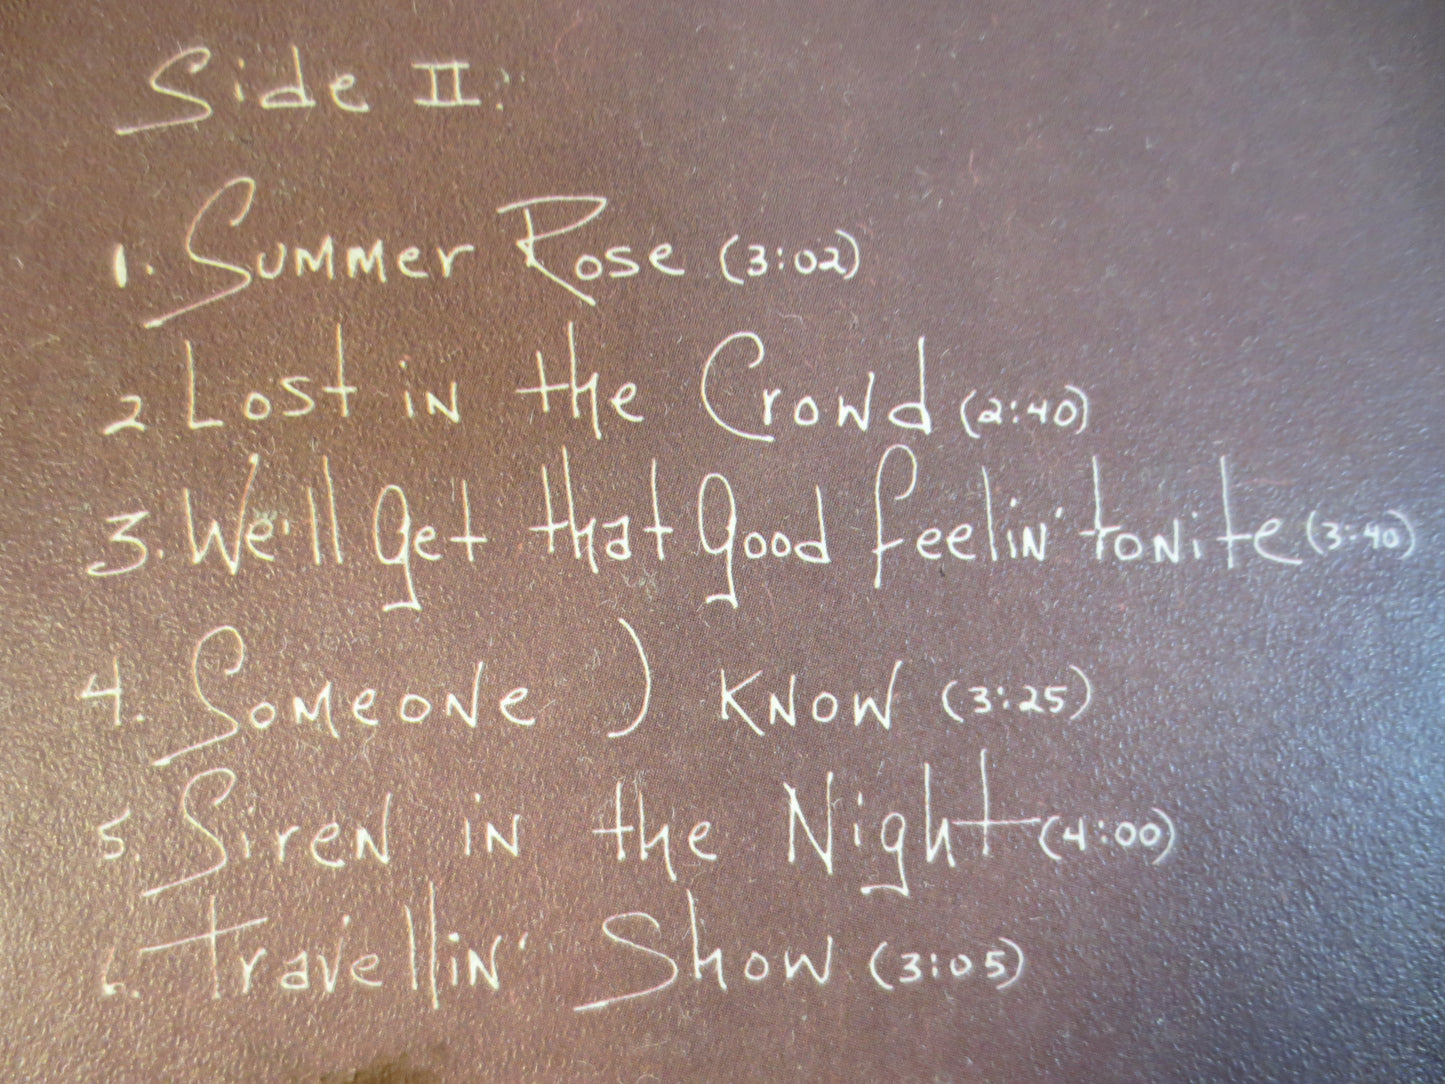 Side II:
1. Summer Rose (3:02)
2 Lost in the Crowd (2:40)
3. We'll get that good feelin' tonite (3:40)
4. Someone I know (3:25)
5. Siren in the Night (4:00)
6. Travellin' Show (3:05)